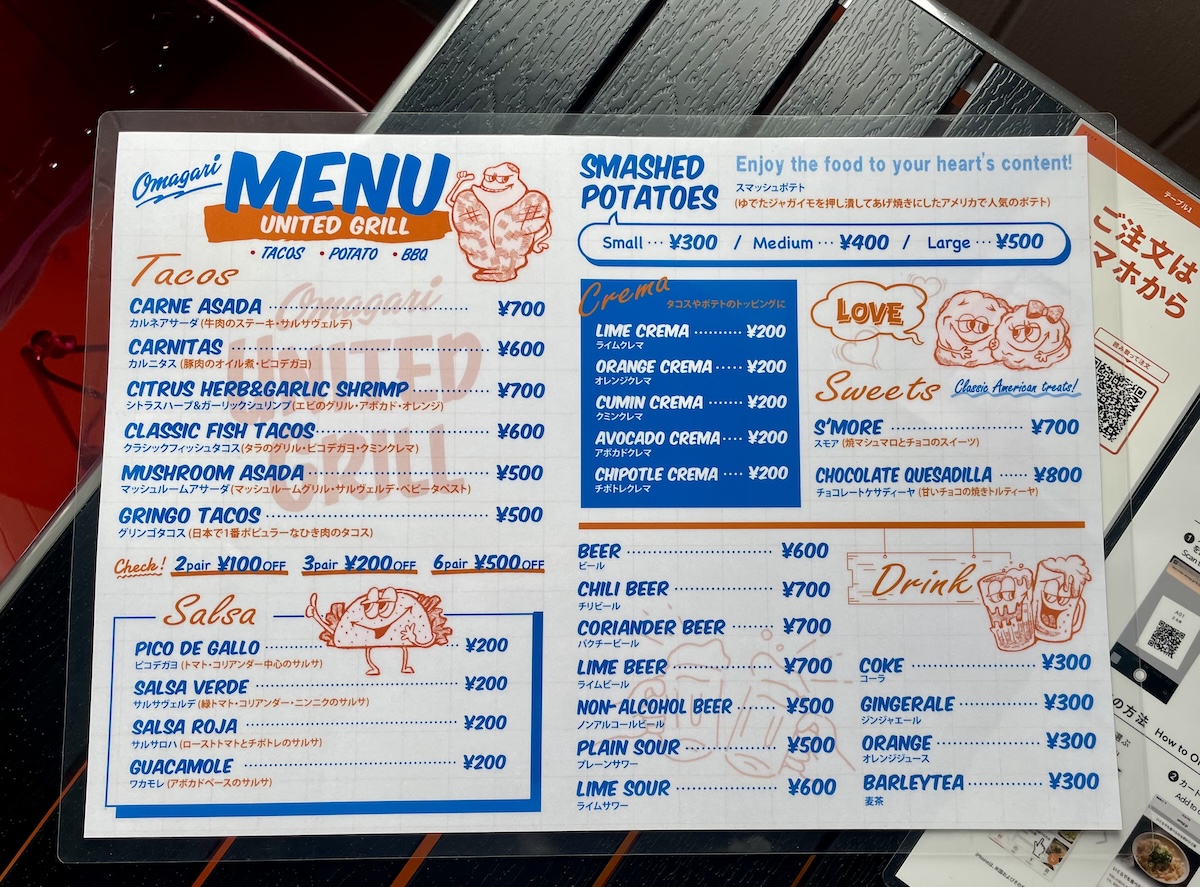 Omagari
MENU
UNITED GRILL
・TACOS ・POTATO ・BBQ
Tacos
CARNE ASADA ¥700
カルネアサーダ (牛肉のステーキ・サルサヴェルデ)
CARNITAS ¥600
カルニタス (豚肉のオイル煮・ピコデガヨ)
CITRUS HERB&GARLIC SHRIMP ¥700
シトラスハーブ&ガーリックシュリンプ (エビのグリル・アボカド・オレンジ)
CLASSIC FISH TACOS ¥600
クラシックフィッシュタコス (タラのグリル・ピコデガヨ・クミンクレマ)
MUSHROOM ASADA ¥500
マッシュルームアサーダ (マッシュルームグリル・サルヴェルデ・ペピータペスト)
GRINGO TACOS ¥500
グリンゴタコス (日本で1番ポピュラーなひき肉のタコス)
Omagari
UNITED
GRILL
Check! 2pair ¥100OFF 3pair ¥200OFF 6pair ¥500OFF
Salsa
PICO DE GALLO ¥200
ピコデガヨ (トマト・コリアンダー中心のサルサ)
SALSA VERDE ¥200
サルサヴェルデ (緑トマト・コリアンダー・ニンニクのサルサ)
SALSA ROJA ¥200
サルサロハ (ローストトマトとチポトレのサルサ)
GUACAMOLE ¥200
ワカモレ (アボカドベースのサルサ)
SMASHED
POTATOES
Enjoy the food to your heart's content!
スマッシュポテト
(ゆでたジャガイモを押し潰してあげ焼きにしたアメリカで人気のポテト)
Small… ¥300 / Medium… ¥400 / Large… ¥500
Crema
タコスやポテトのトッピングに
LIME CREMA ¥200
ライムクレマ
ORANGE CREMA ¥200
オレンジクレマ
CUMIN CREMA ¥200
クミンクレマ
AVOCADO CREMA ¥200
アボカドクレマ
CHIPOTLE CREMA ¥200
チポトレクレマ
LOVE
Sweets
Classic American treats!
S'MORE ¥700
スモア (焼マシュマロとチョコのスイーツ)
CHOCOLATE QUESADILLA ¥800
チョコレートケサディーヤ (甘いチョコの焼きトルティーヤ)
BEER ¥600
ビール
CHILI BEER ¥700
チリビール
CORIANDER BEER ¥700
パクチービール
LIME BEER ¥700
ライムビール
NON-ALCOHOL BEER ¥500
ノンアルコールビール
PLAIN SOUR ¥500
プレーンサワー
LIME SOUR ¥600
ライムサワー
Drink
COKE ¥300
コーラ
GINGERALE ¥300
ジンジャエール
ORANGE ¥300
オレンジジュース
BARLEYTEA ¥300
麦茶
テーブル1
ご注文は
マホから
読み取って注文
A01
の方法 How to Or
❷ カート
Add to